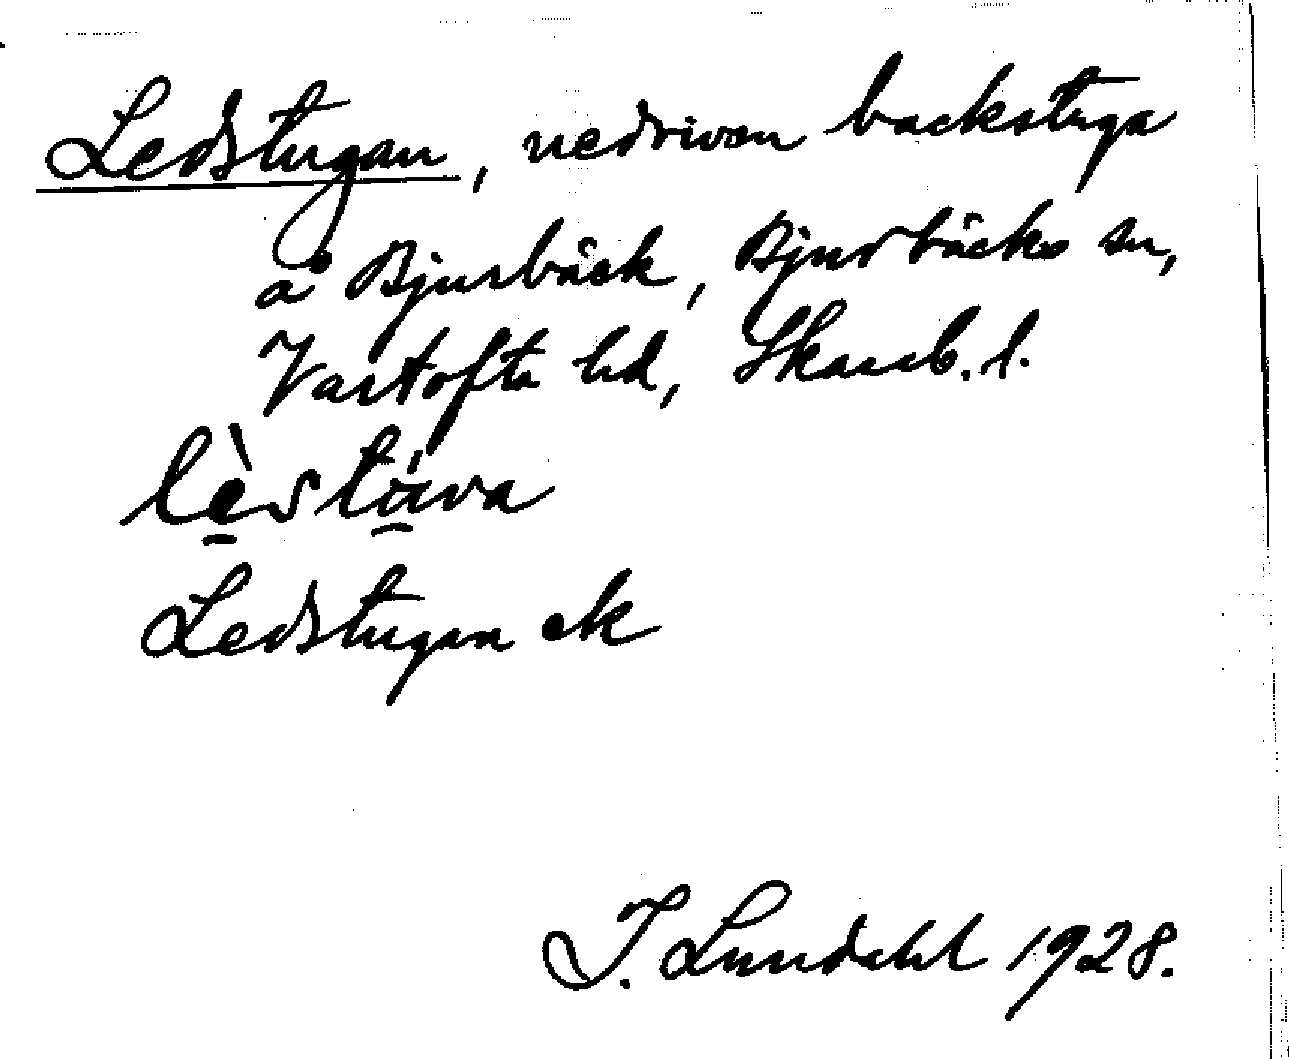 Ledstugan, nedriven backstuga
å Bjurbäck, Bjurbäcks sn,
Vartofta hd, Skarab. l.
lèstúva
Ledstugan ek
I. Lundahl 1928.